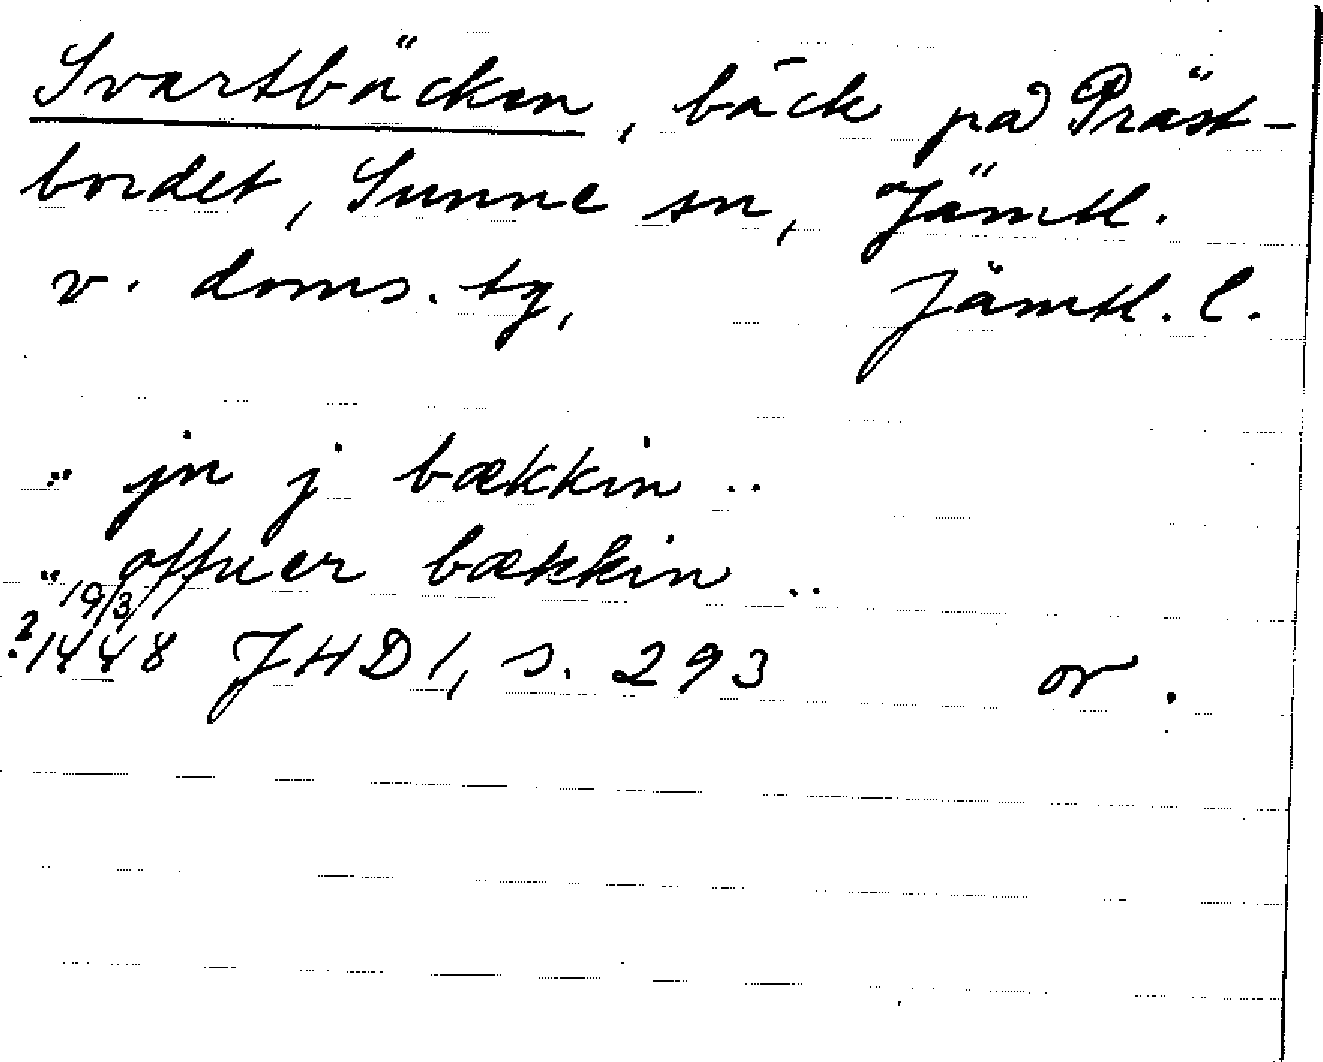 Svartbäcken, bäck på Präst-
bordet, Sunne sn, Jämtl.
v. doms. tg, Jämtl. l.
.. jn j bækkin ..
.. offuer bækkin ..
19/3
? 1448 JHD 1, s. 293 or.